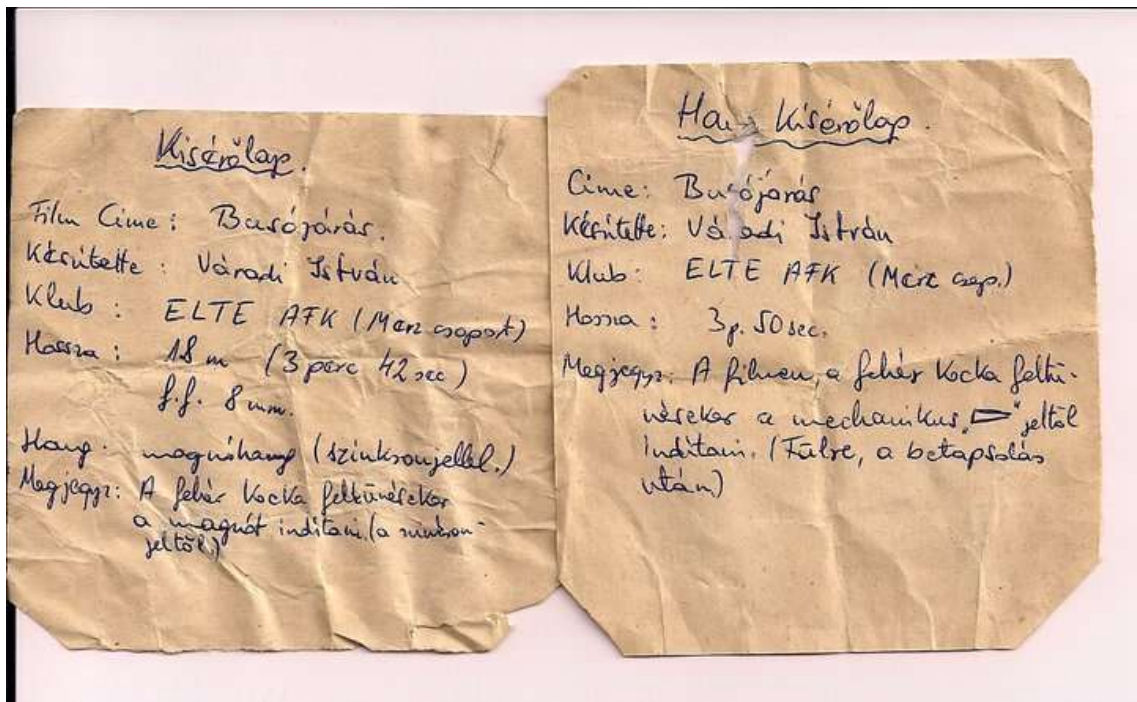 Kisérőlap.
Film Cime: Busójárás.
Készitette: Váradi István
Klub: ELTE AFK (Merz csoport)
Hossza: 18 m (3 perc 42 sec)
f.f. 8 mm.
Hang: magnóhang (szinkronjellel.)
Megjegyz: A fehér kocka feltünésekor
a magnót inditani. (a szinkron-
jeltől)
Kisérőlap.
Cime: Busójárás
Készitette: Váradi István
Klub: ELTE AFK (Merz csop.)
Hossza: 3p. 50 sec.
Megjegyz: A filmen, a fehér kocka feltü-
nésekor a mechanikus „ ” jeltől
Inditani. (Fülre, a betapsolás
után)